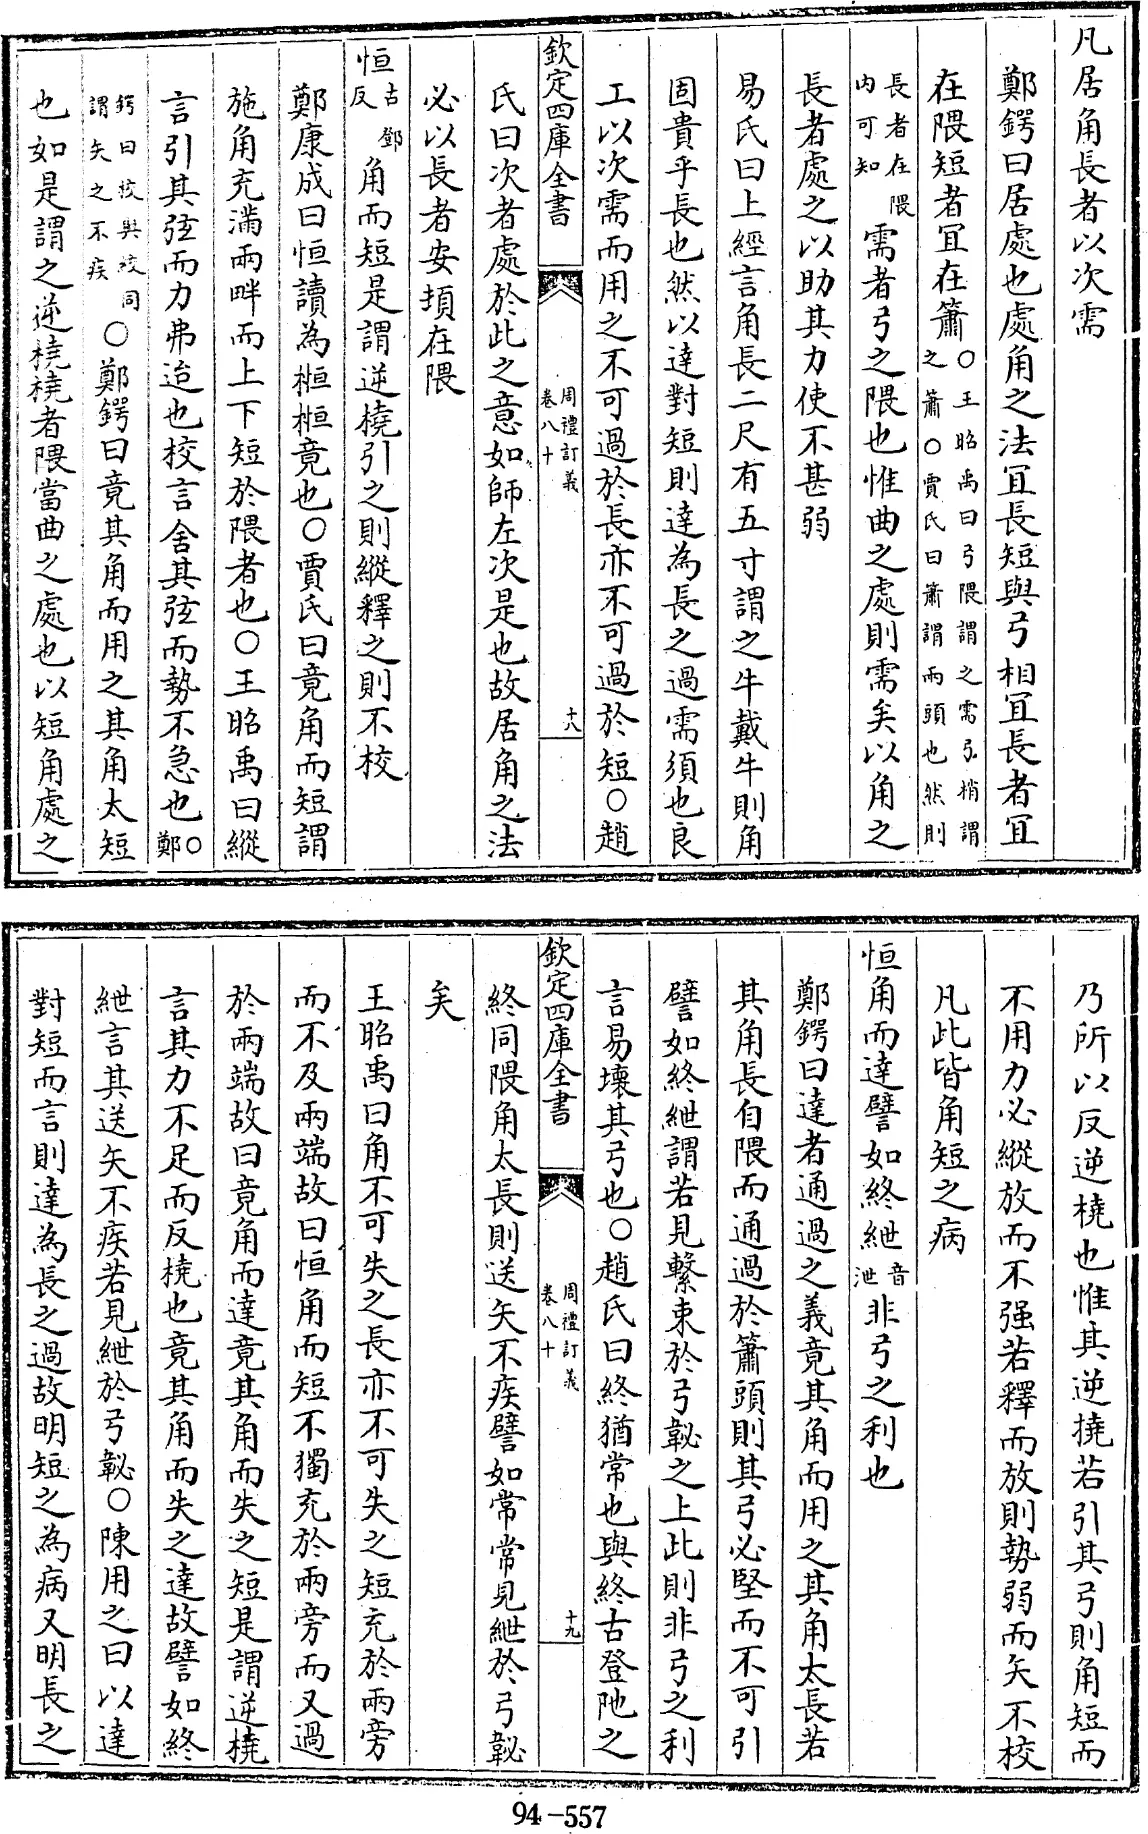 凡居角長者以次需
鄭鍔曰居處也處角之法宜長短與弓相宜長者宜
在隈短者宜在簫○王昭禹曰弓隈謂之需弓梢謂之簫○賈氏曰簫謂兩頭也然則
長者在隈内可知需者弓之隈也惟曲之處則需矣以角之
長者處之以助其力使不甚弱
易氏曰上經言角長二尺有五寸謂之牛戴牛則角
固貴乎長也然以達對短則達為長之過需須也良
工以次需而用之不可過於長亦不可過於短○趙
欽定四庫全書 周禮訂義 卷八十 十八
氏曰次者處於此之意如師左次是也故居角之法
必以長者安頓在隈
恒古鄧反角而短是謂逆橈引之則縱釋之則不校
鄭康成曰恒讀為㮓㮓竟也○賈氏曰竟角而短謂
施角充滿兩畔而上下短於隈者也○王昭禹曰縱
言引其弦而力弗迨也校言舍其弦而勢不急也○鄭
鍔曰校與絞同謂矢之不疾○鄭鍔曰竟其角而用之其角太短
也如是謂之逆橈橈者隈當曲之處也以短角處之
乃所以反逆橈也惟其逆撓若引其弓則角短而
不用力必縱放而不强若釋而放則勢弱而矢不校
凡此皆角短之病
恒角而達譬如終紲音泄非弓之利也
鄭鍔曰達者通過之義竟其角而用之其角太長若
其角長自隈而通過於簫頭則其弓必堅而不可引
譬如終紲謂若見繫束於弓䪐之上此則非弓之利
言易壞其弓也○趙氏曰終猶常也與終古登阤之
欽定四庫全書 周禮訂義 卷八十 十九
終同隈角太長則送矢不疾譬如常常見紲於弓䪐
矣
王昭禹曰角不可失之長亦不可失之短充於兩旁
而不及兩端故曰恒角而短不獨充於兩旁而又過
於兩端故曰竟角而達竟其角而失之短是謂逆橈
言其力不足而反橈也竟其角而失之達故譬如終
紲言其送矢不疾若見紲於弓䪐○陳用之曰以達
對短而言則達為長之過故明短之為病又明長之
94-557